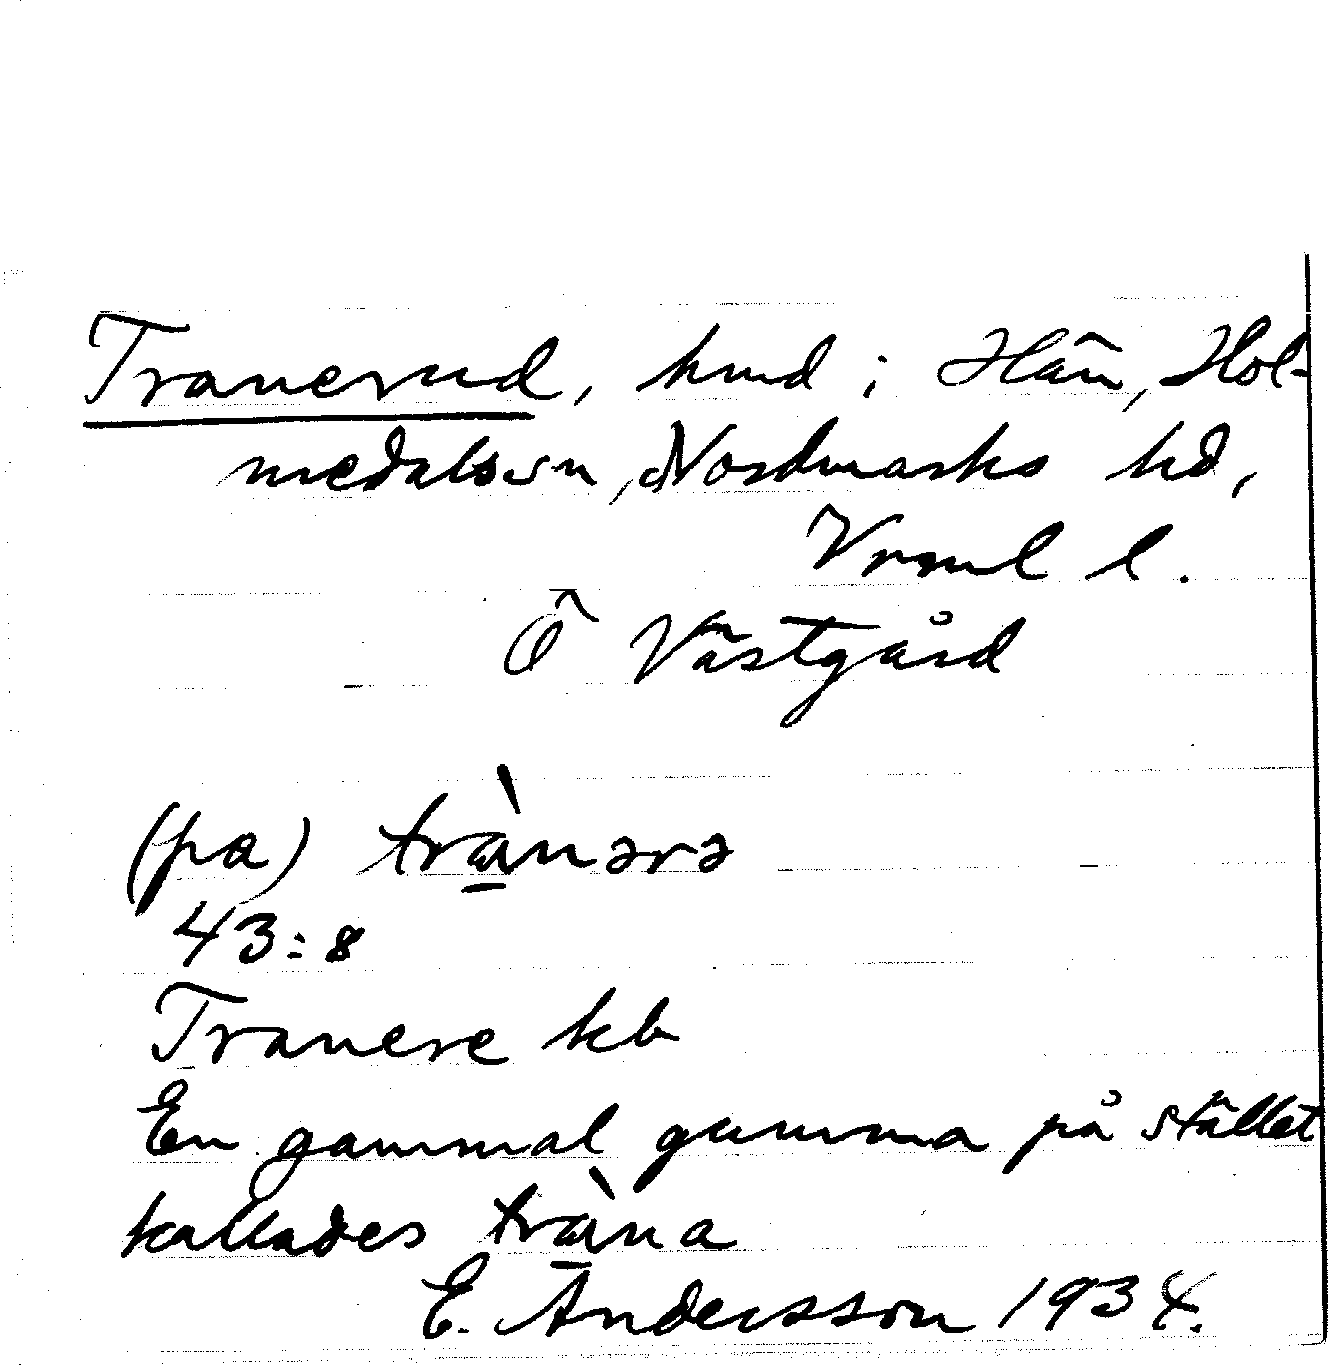 Tranerud, hmd i Hån, Hol-
medals sn, Nordmarks hd,
Vrml l.
Ö Västgård
(pa) trànərə
43:8
Tranere kb
En gammal gumma på stället
kallades tràna
E. Andersson 1934.